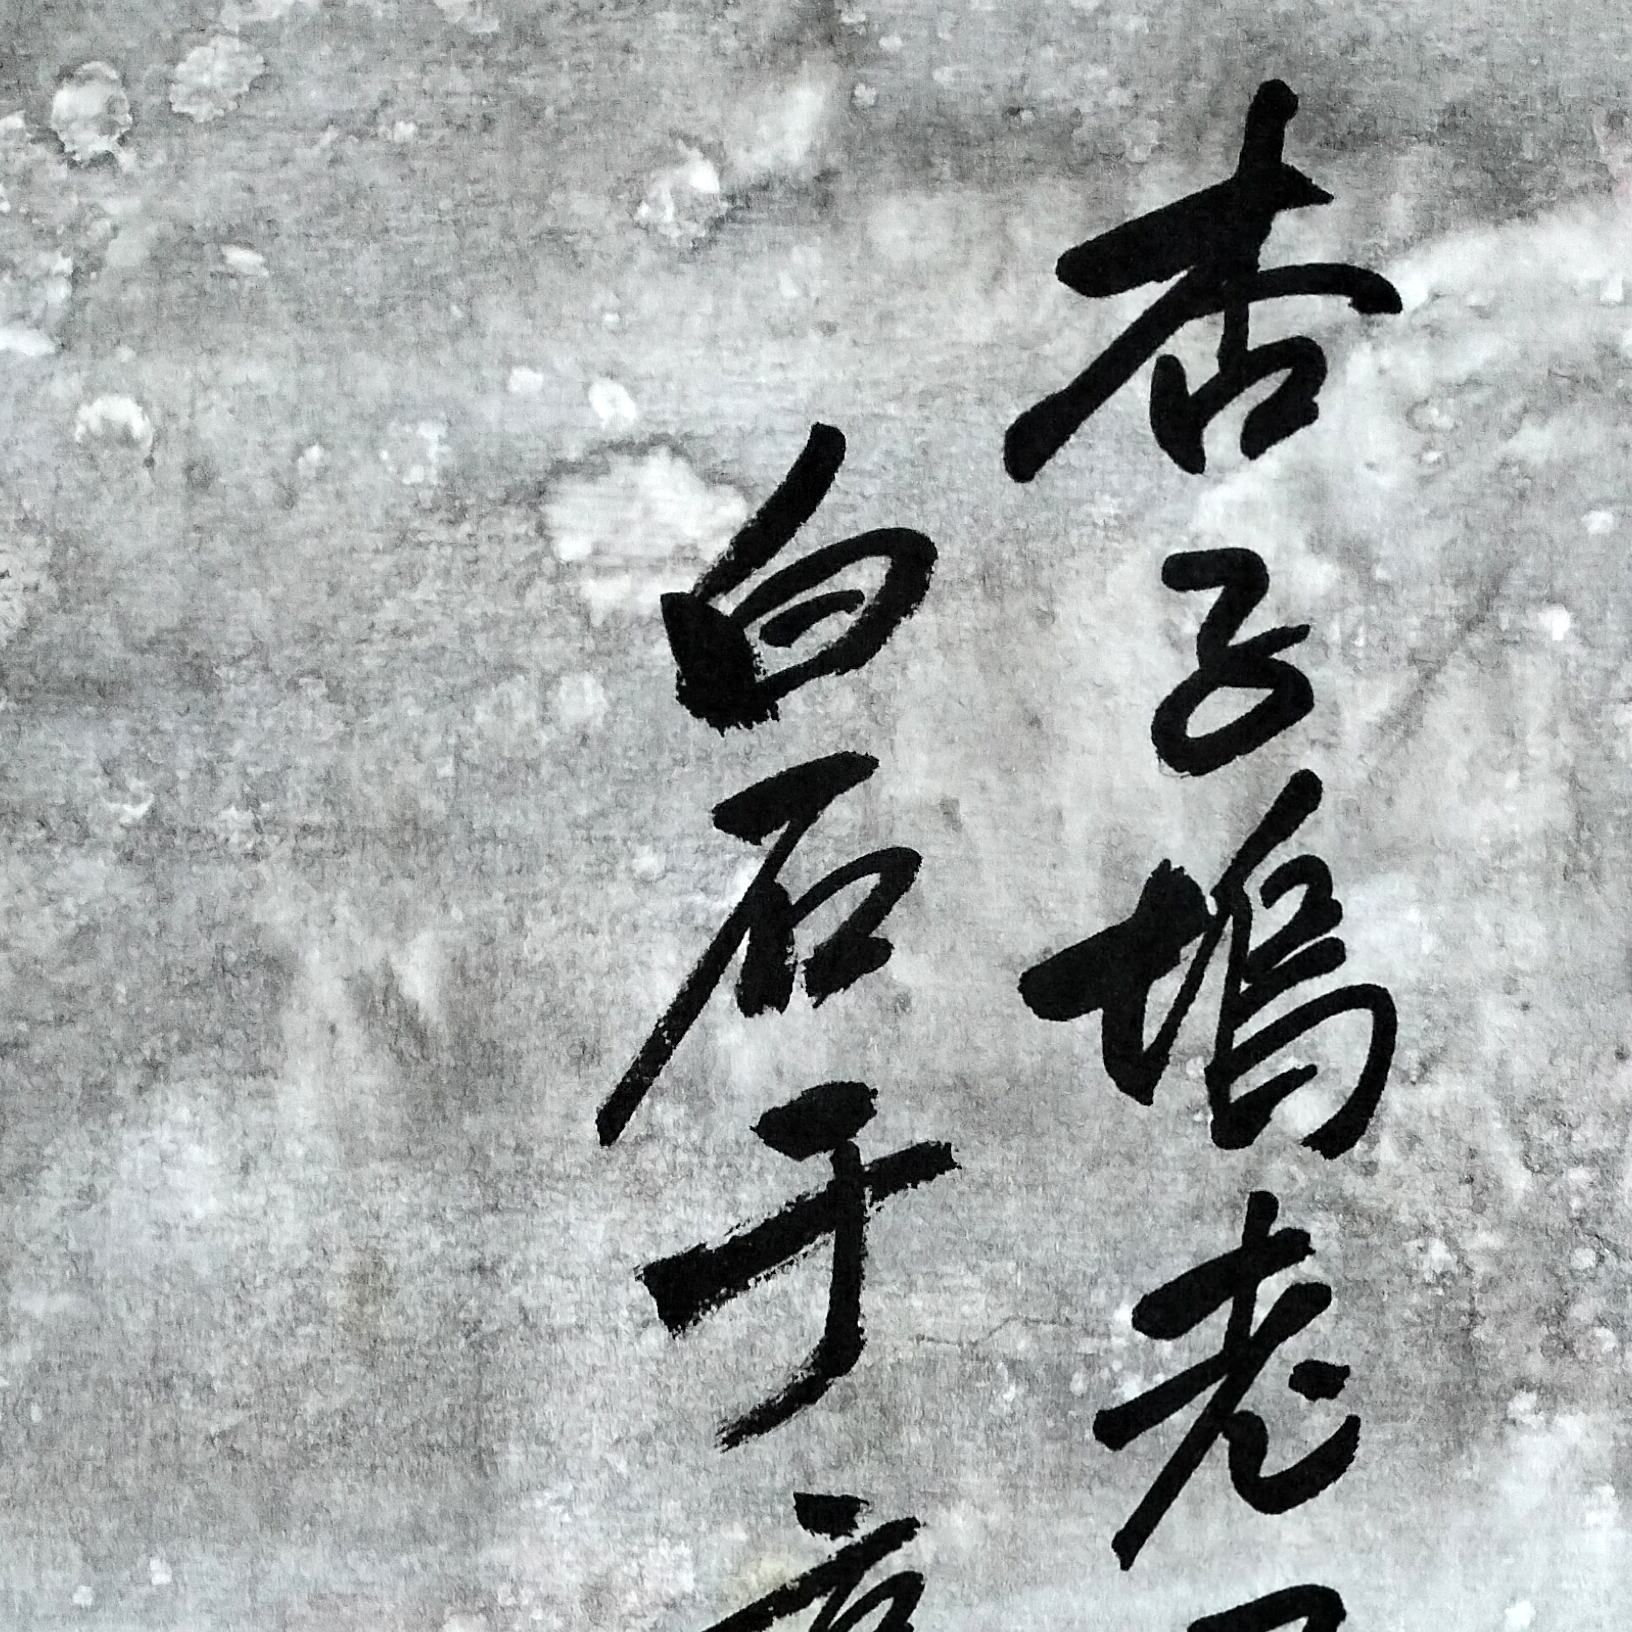 杏子塢老
白石于